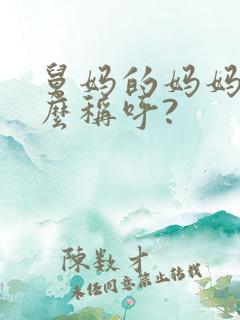 舅妈的妈妈
麽稱呼?
陳数才
未经同意禁止转载